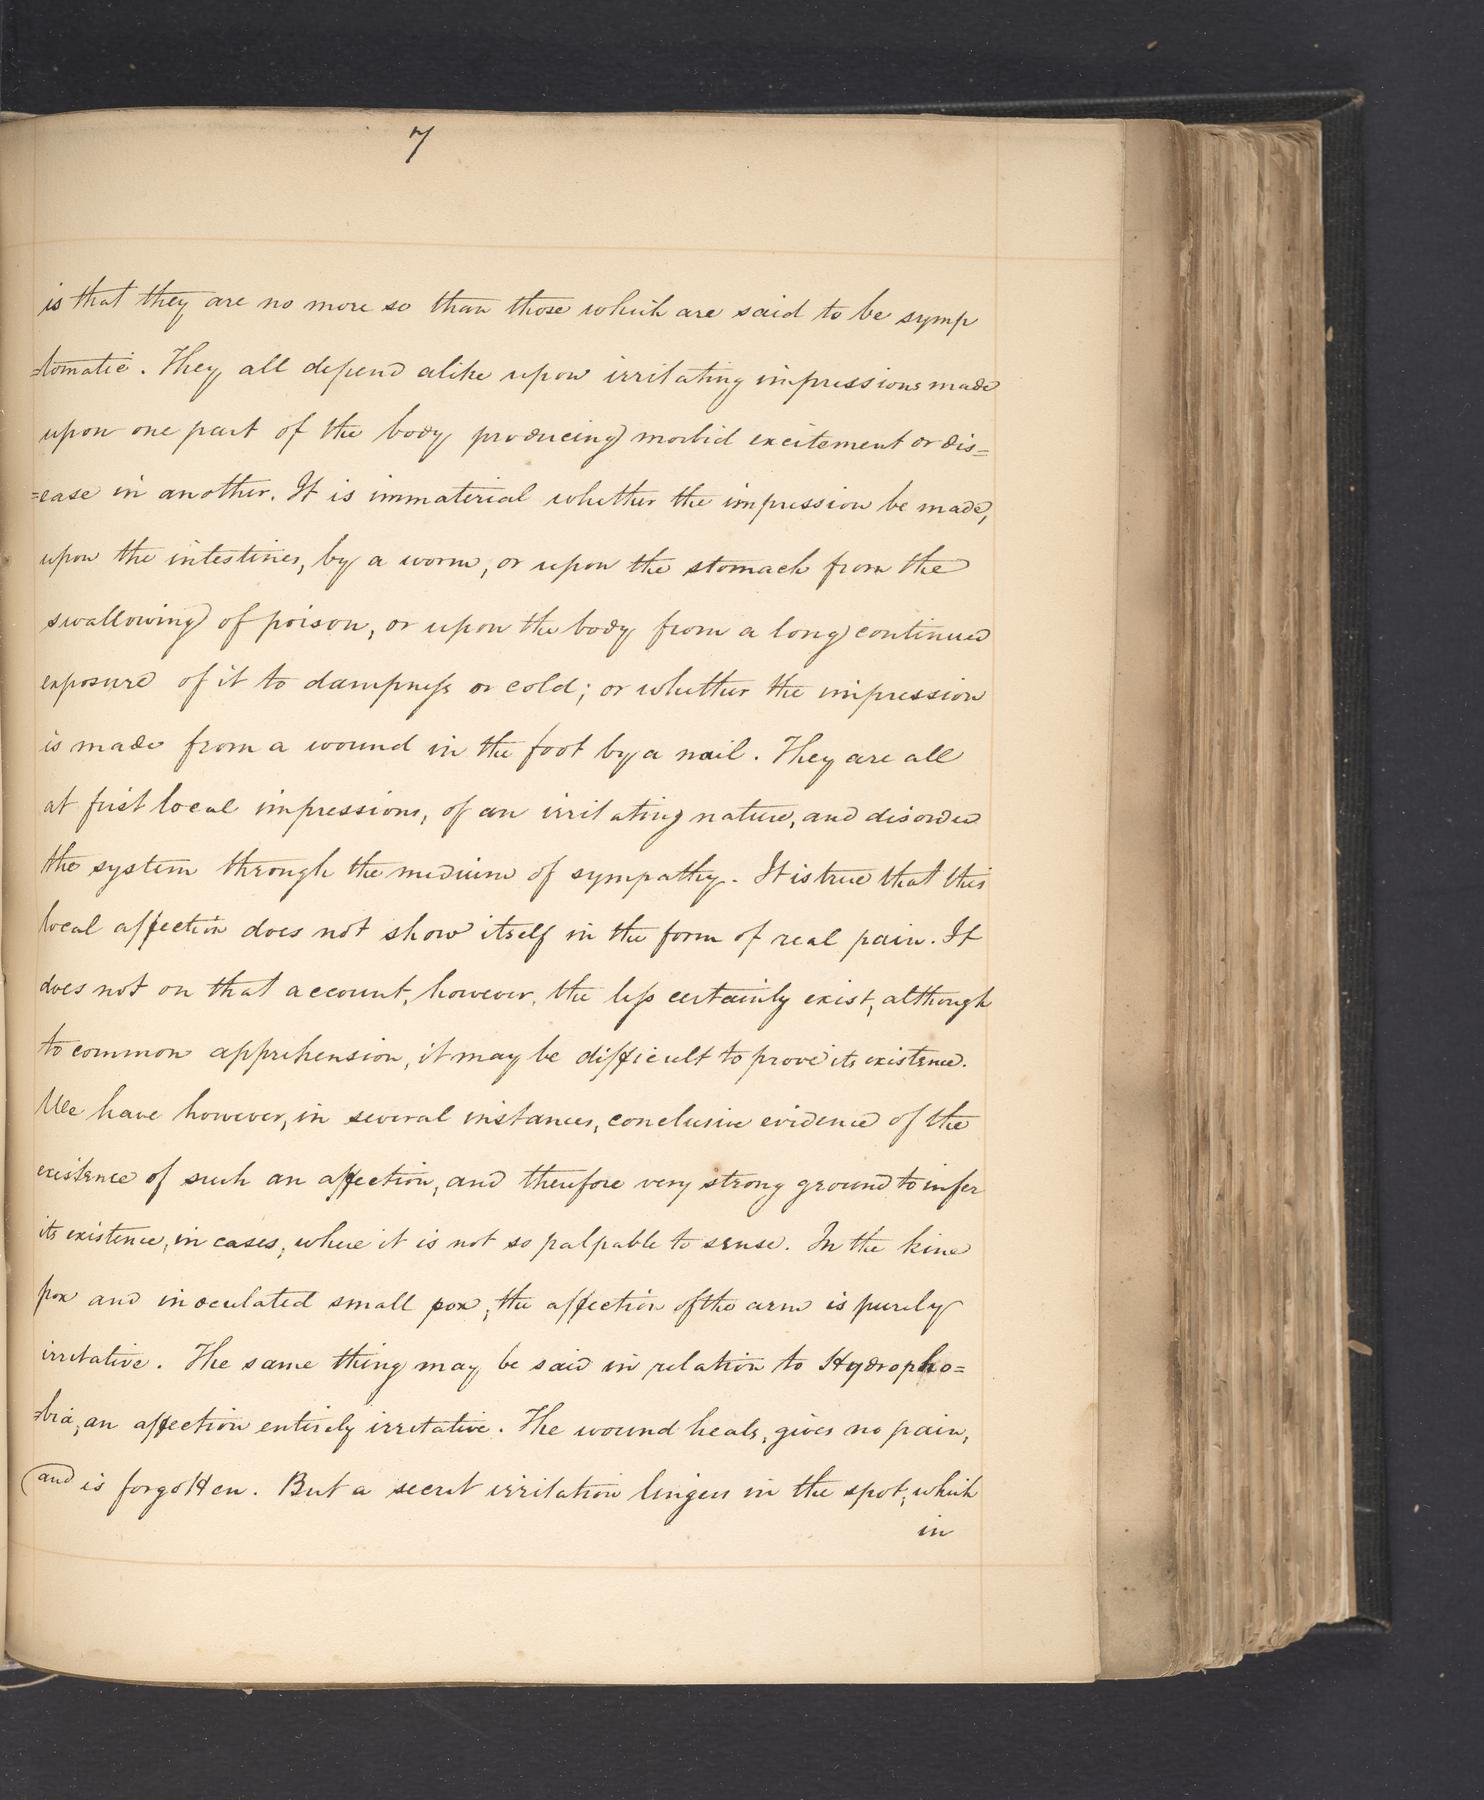 7
is that they are no more so than those which are said to be symp
=tomatic. They all depend alike upon irritating impressions made
upon one part of the body producing morbid excitement or dis=
=ease in another. It is immaterial whether the impression be made,
upon the intestines, by a worm, or upon the stomach from the
swallowing of poison, or upon the body from a long continued
exposure of it to dampness or cold; or whether the impression
is made from a wound in the foot by a nail. They are all
at first local impressions, of an irritating nature, and disorder
the system through the medium of sympathy. It is true that this
local affection does not show itself in the form of real pain. It
does not on that account, however, the less certainly exist, although
to common apprehension, it may be difficult to prove its existence.
We have however, in several instances, conclusive evidence of the
existence of such an affection, and therefore very strong ground to infer
its existence, in cases, where it is not so palpable to sense. In the kine
pox and inoculated small pox, the affection of the arm is purely
irritative. The same thing may be said in relation to Hydropho=
=bia, an affection entirely irritative. The wound heals, gives no pain,
and is forgotten. But a secret irritation lingers in the spot, which
in